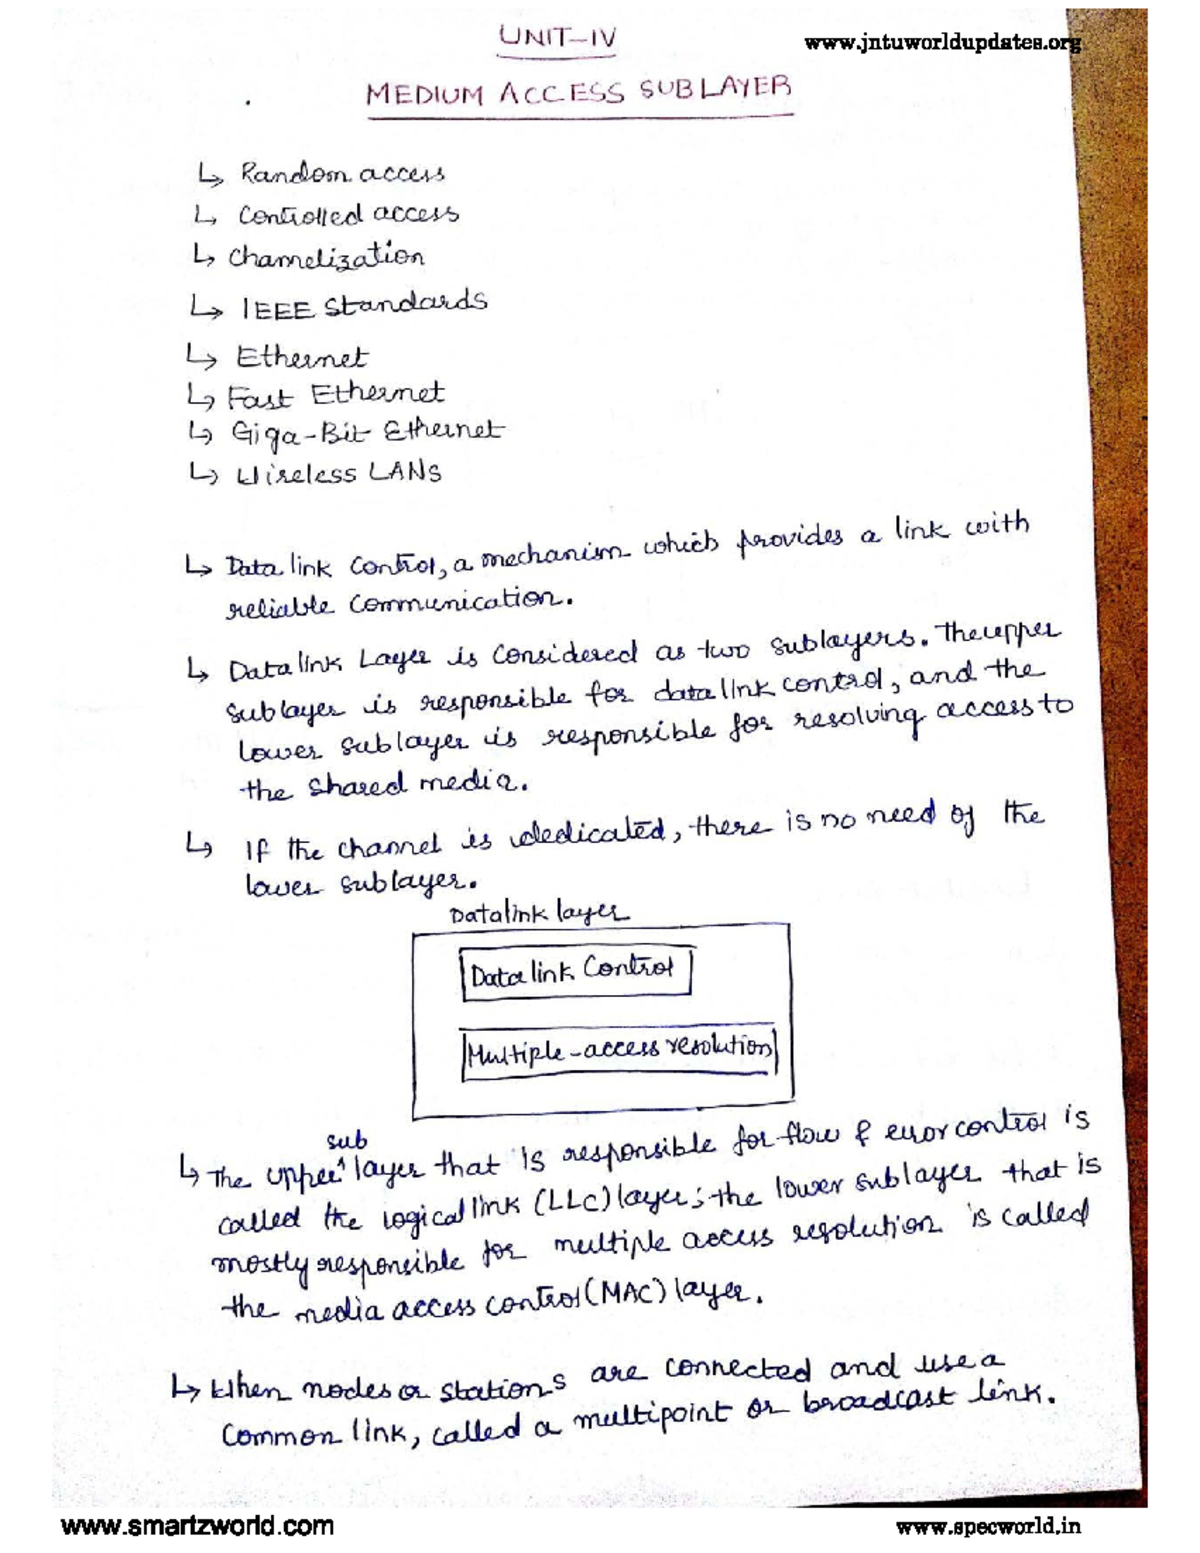 UNIT-IV
www.jntuworldupdates.org
MEDIUM ACCESS SUBLAYER
↳ Random access
↳ Controlled access
↳ Channelization
↳ IEEE Standards
↳ Ethernet
↳ Fast Ethernet
↳ Giga-Bit Ethernet
↳ Wireless LANs
↳ Data link control, a mechanism which provides a link with
reliable communication.
↳ Data link Layer is considered as two sublayers. The upper
sublayer is responsible for data link control, and the
lower sublayer is responsible for resolving access to
the shared media.
↳ If the channel is dedicated, there is no need of the
lower sublayer.
Datalink layer
Data link Control
Multiple-access resolution
sub
↳ The upper^ layer that is responsible for flow & error control is
called the logical link (LLC) layer; the lower sublayer that is
mostly responsible for multiple access resolution is called
the media access control (MAC) layer.
↳ When nodes or stations are connected and use a
common link, called a multipoint or broadcast link.
www.smartzworld.com
www.specworld.in